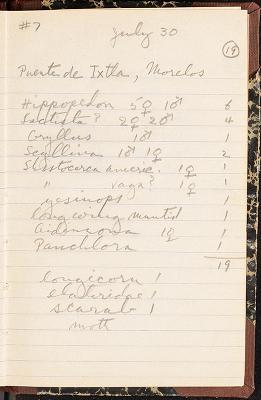 #7
July 30
19
Puente de Ixtla, Morelos
Hippopedon 5♀ 1♂ 6
? 2♀ 2♂ 4
Gryllus 1♂ 1
Scyllina 1♂ 1♀ 2
Shistocerca americ. 1♀ 1
" vaga? 1♀ 1
1
long mantid 1
1♀ 1
Panchlora 1
19
longicorn 1
elateridae 1
scarab 1
moth